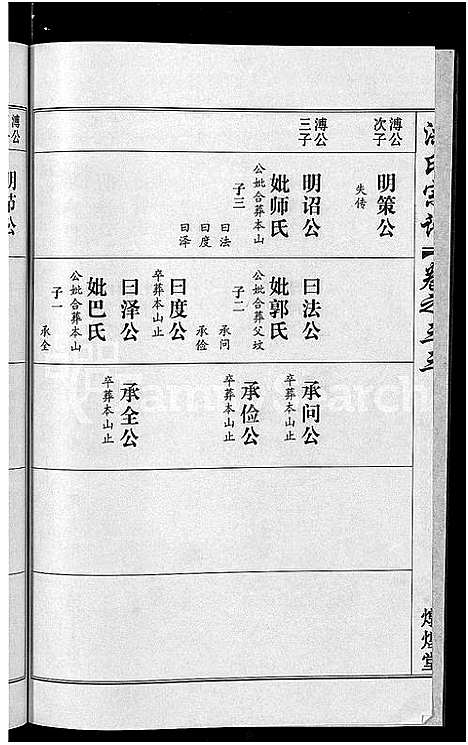 溥公
次子
溥公
三子
明策公
失传
明诏公
妣师氏
公妣合葬本山
子三
曰法
曰度
曰泽
曰法公
妣郭氏
公妣合葬父坟
子二
承问
承俭
曰度公
卒葬本山止
曰泽公
妣巴氏
公妣合葬本山
子一
承全
承问公
卒葬本山止
承俭公
卒葬本山止
承全公
卒葬本山止
氏宗谱
卷之三三
煌堂
溥公
明节公